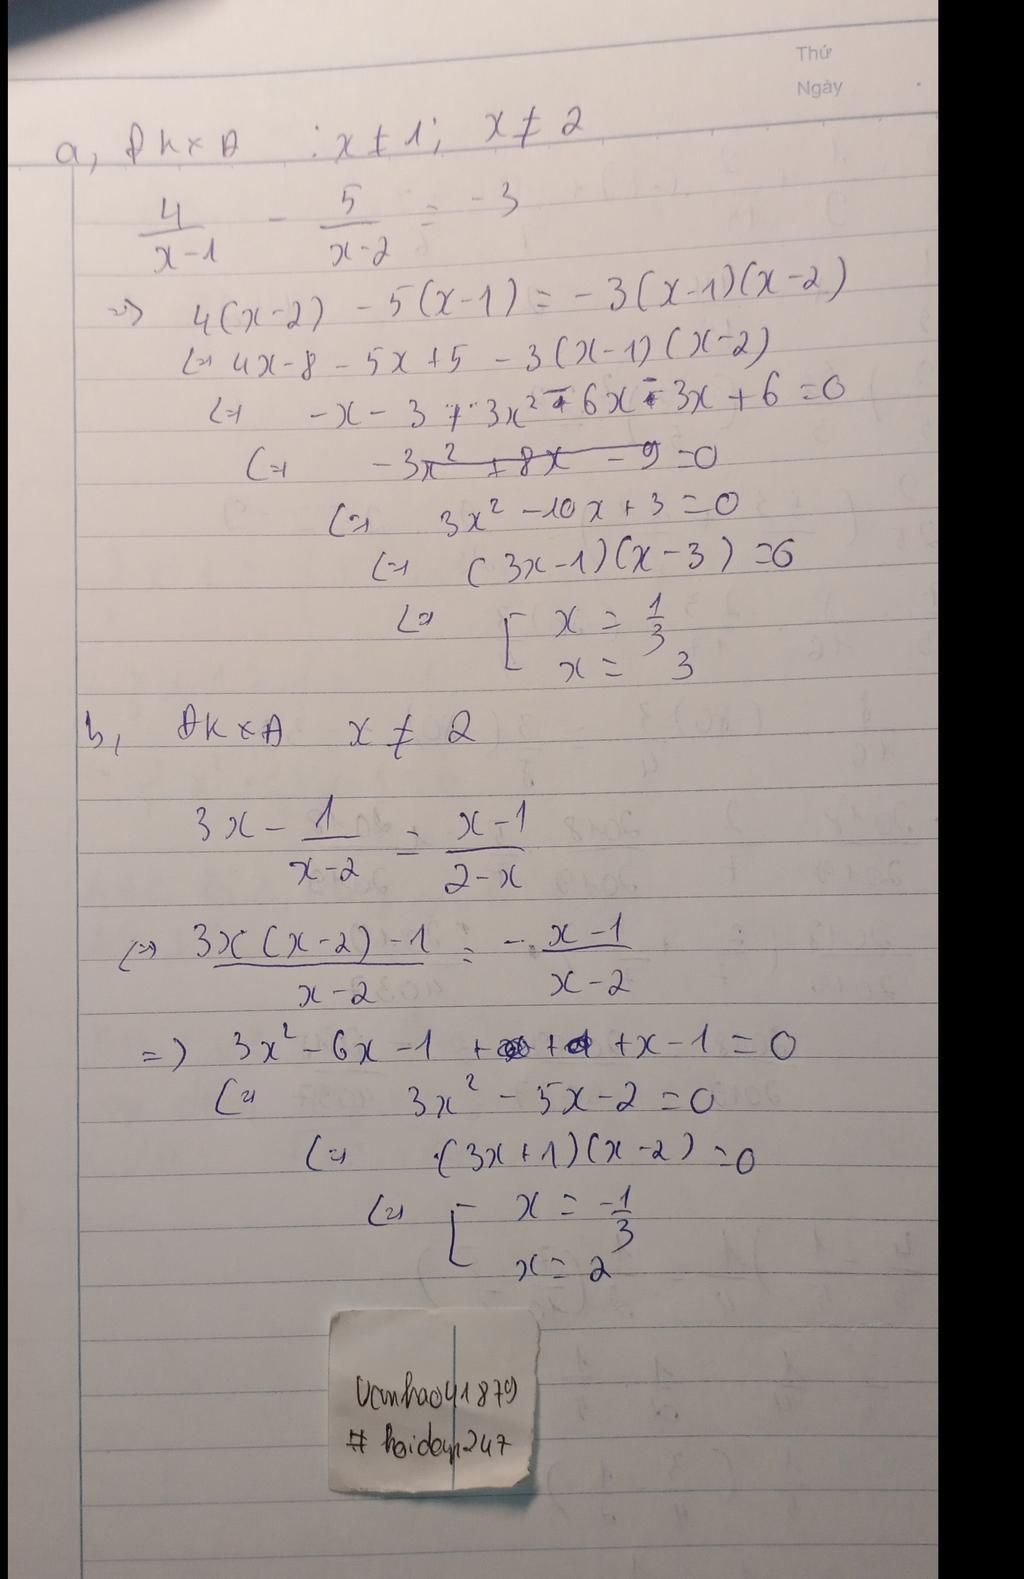 Thứ
Ngày
a, ĐKXĐ : x ≠ 1; x ≠ 2
4/(x-1) - 5/(x-2) = -3
=> 4(x-2) - 5(x-1) = -3(x-1)(x-2)
<=> 4x-8 - 5x+5 - 3(x-1)(x-2)
<=> -x - 3 + 3x² - 6x - 3x + 6 = 0
<=> -3x² + 8x - 9 = 0
<=> 3x² - 10x + 3 = 0
<=> (3x-1)(x-3) = 0
<=> [ x = 1/3
x = 3
b, ĐKXĐ x ≠ 2
3x - 1/(x-2) = (x-1)/(2-x)
<=> (3x(x-2)-1)/(x-2) = - (x-1)/(x-2)
=> 3x² - 6x - 1 + x - 1 = 0
<=> 3x² - 5x - 2 = 0
<=> (3x+1)(x-2) = 0
<=> [ x = -1/3
x = 2
Vanhao41879
# hoidap247